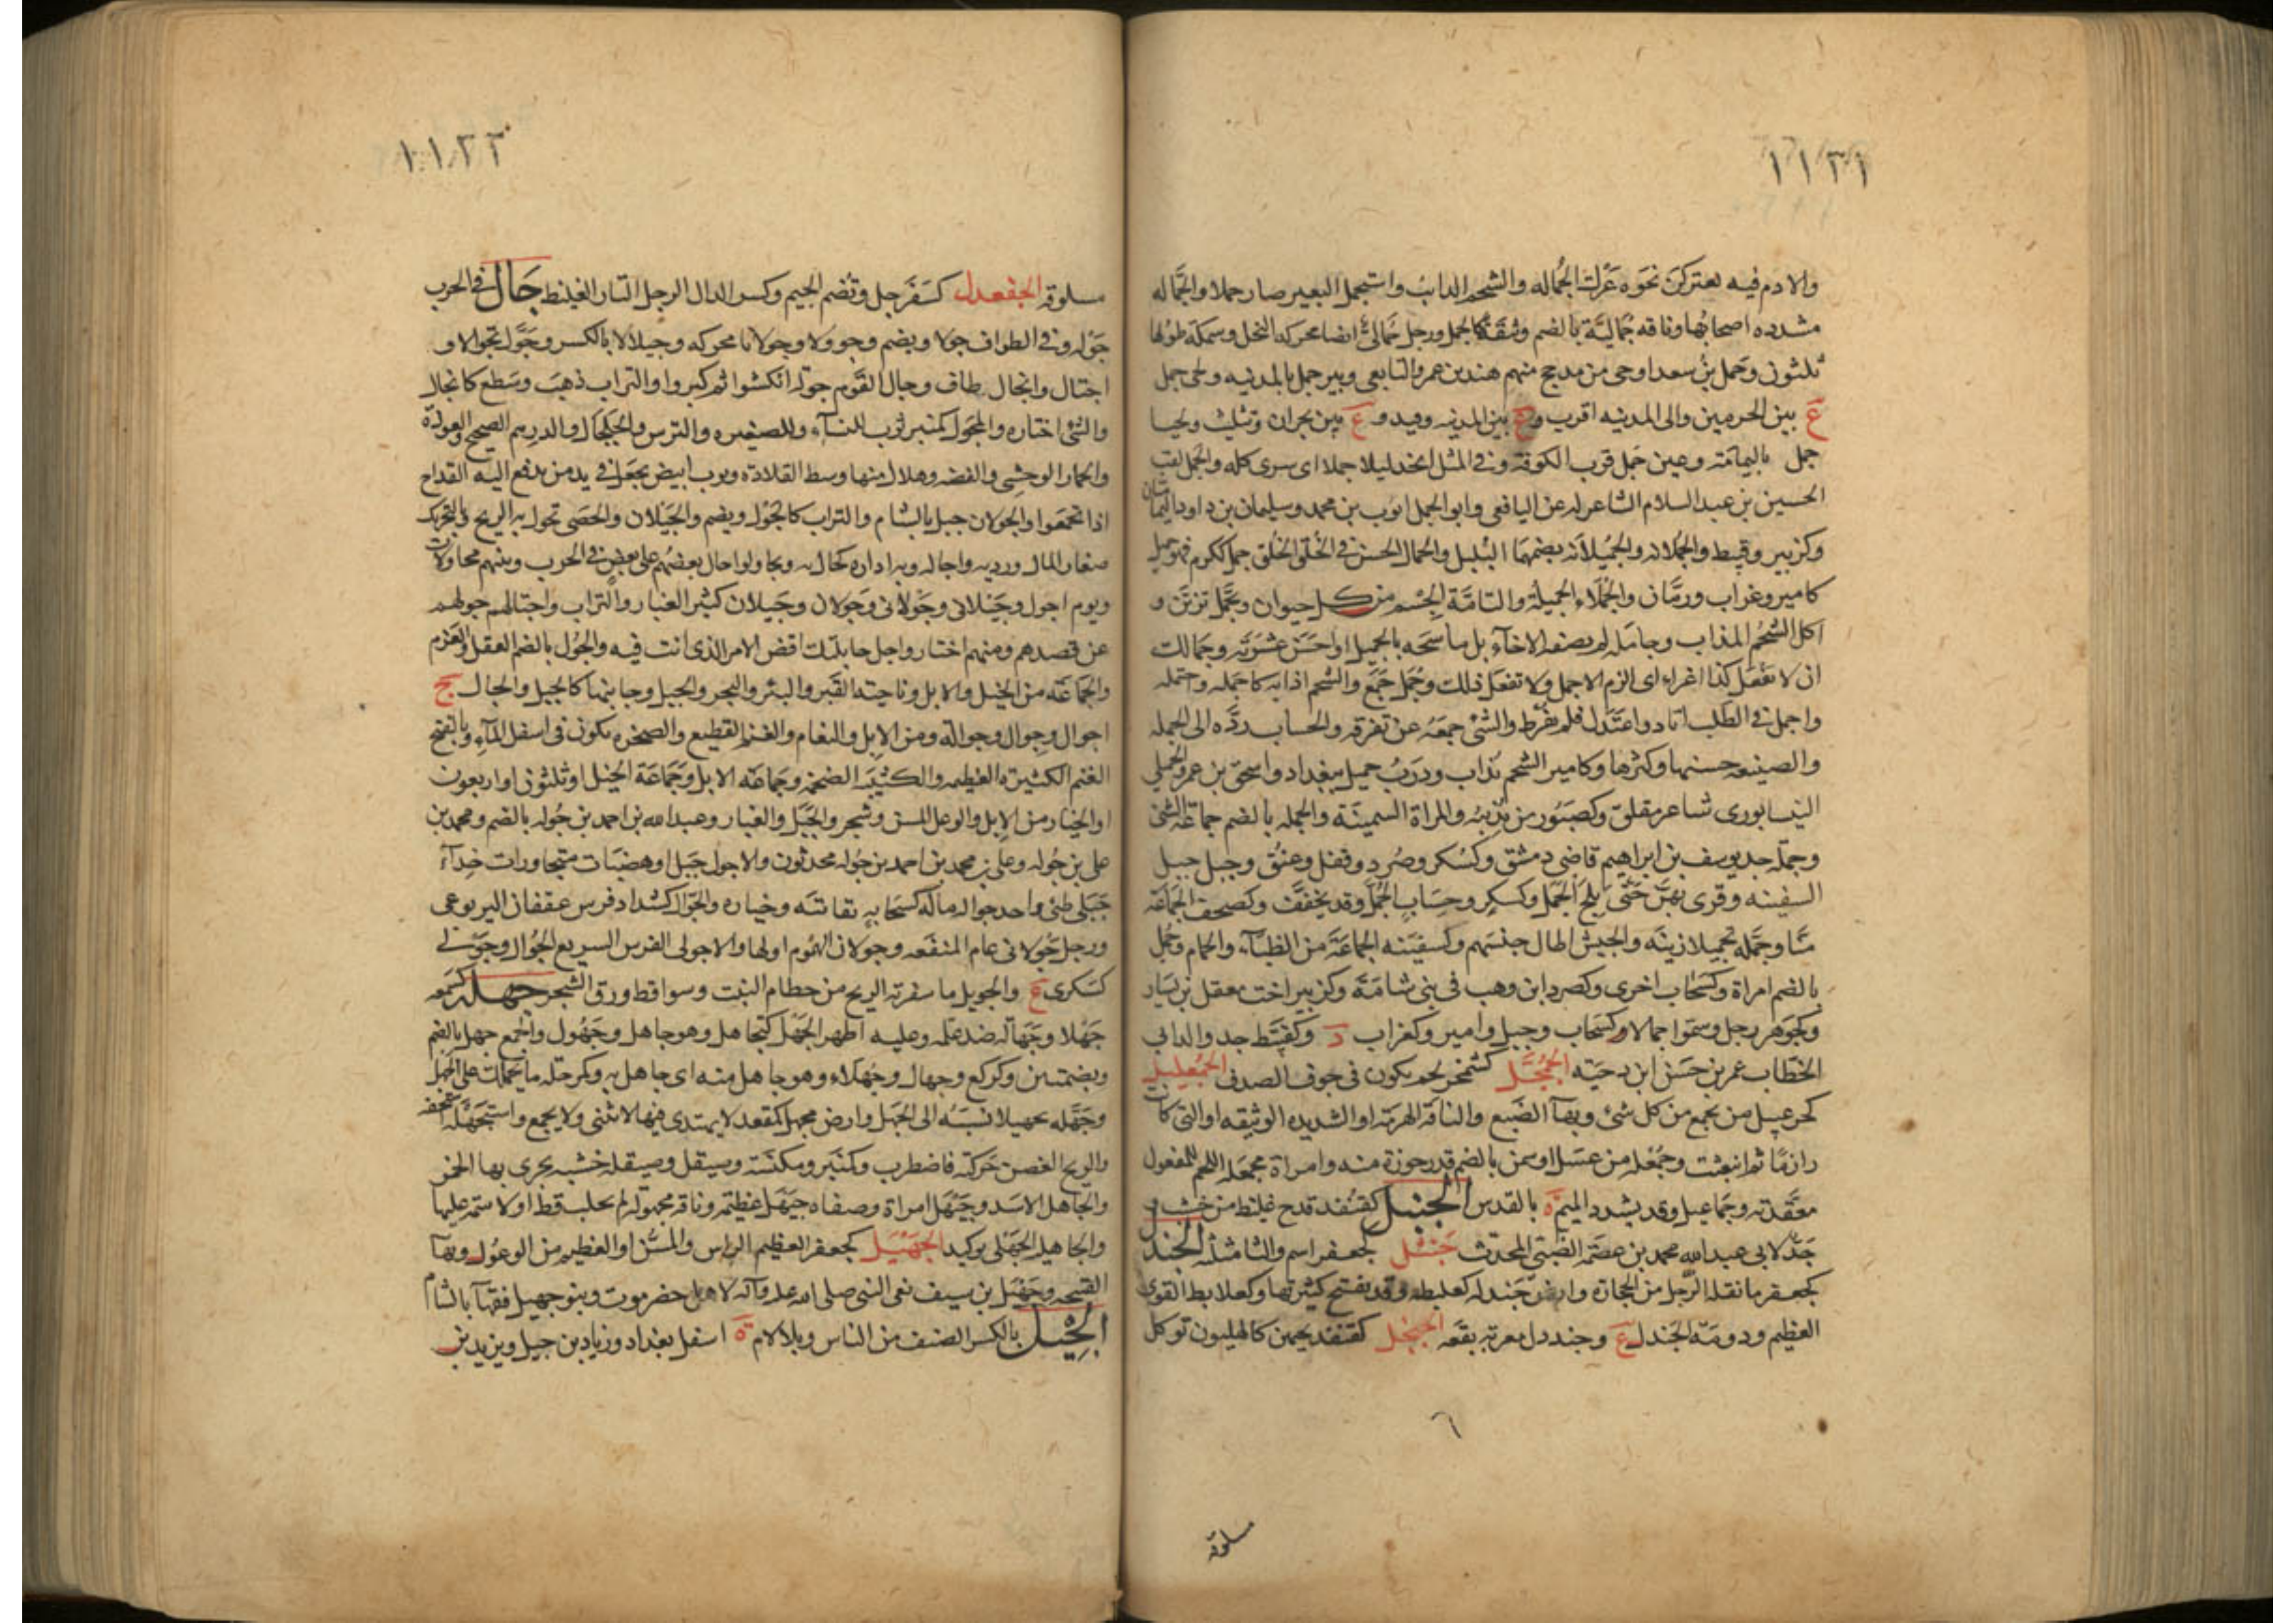 ١١٣١
والادم فيه لعتركن نحوه عَرْك الجُماله والشحم الذايب واستجمل البعير صار جملا والجَّماله
مشدده اصحابُها وناقه جُماليَّة بالضم وثيقة كالجمل ورجل جُماليٌّ ايضا محركه النخل وسمكة طولها
ثلثون وجَمل بنُ سعد اوحى من مدحج منهم هند بن عمرو التابعى وبير جمل بالمدينه ولحى جمل
ع بين الحرمين والى المدينه اقرب وع بين المدينه وفيد وع بين نجران وتثليث ولحيا
جمل باليمامة وعين جَمل قرب الكوفة وفى المثل اتخذ ليلا جملا اى سرى كله والجمل لقب
الحسين بن عبد السلام الشاعر له عن الشافعى وابو الجمل ايوب بن محمد وسليمان بن داود اليمانيان
وكزبير وقبيط والجُملانه والجُميلانه بضمهما البُلبل والجمال الحسن فى الخُلق والخَلق جمل ككرم فهو جميل
كامير وغراب ورمَّان والجَملاء الجميلة والتامّة الجِسْم من كل حيوان وتجَمَّل تزيّن و
اكل الشحم المذاب وجامله لم يصفه الاخآء بل ماسحه بالجميل او احسَن عشرَته وجمالك
ان لا تفعَل كذا اغراء اى الزم الاجمل ولا تفعَل ذلك وجُمل جَمَع والشحم اذابه كاجمله واجتمله
واجمل فى الطَلب اتاد واعتَدل فلم يفرط والشئ جمعَهُ عن تفرقه والحساب ردَّه الى الجمله
والصنيعه حسنها وكثرها وكامير الشحم يذاب ودَربُ جميل ببغداد واسحق بن عمر الجميلى
النيسابورى شاعر مفلق وكصَبُور من تذيبُه والمراة السمينَة والجمله بالضم جماعَة الشئ
وجملة جد يوسف بن ابراهيم قاضى دمشق وكسُكر وصُرد وقفل وعنُق وجبل حبل
السفينه وقرى بهنَّ حَتّى يلج الجُمل وكسكر وحِسَاب الجُمل وقد يخففَ وكصحف الجماعَة
منَّا وجَمَّله تجميلا زينَه والجيش اطال حبسَهم وكسفينَه الجماعَة من الظبآء والحمام وجُمل
بالضم امراة وكسَحاب اخرى وكصرد ابن وهب فى بنى شامَة وكزبير اخت معقل بن يسَار
وكجوهر رجل وسَمّوا جمالا وكسَحاب وجبل وامير وكغراب د وكقبيَّط جد والد ابى
الخطاب عمر بن حسَن ابن دحيَه الجُمَحْل كشمخر لحم يكون فى جوف الصدف الجُمَعليل
كخزعبيل من يجمع من كل شئ وبهآ الضَبع والناقَة الهرمَة او الشديده الوثيقه او التى كانت
رازمًا ثم انبعثت وجُمْعله من عسَل او سمن بالضم قدر جوزة منه وامراة مجمعَلة اللحم للمفعول
معقّدته وجَماعيل وقد يشدد الميم ة بالقدس الجُنبل كقنفذ قدح غليظ من خشب و
جَدٌّ لابى عبد الله محمد بن عصمَ الضبى المحدث جَنثل كجعفر اسم والثا مثلثه الجَندل
كجعفر ما نقله الرجل من الحجارة وارض جَندله كعلبطه وقد يفتح كثيرتها وكعلابط القوى
العظيم ودومَة الجَندل ع وجنددل معربه بقعه الجُنحل كقنفذ بجمن كالهليون توكل
مسلوقه
١١٣٢
مسلوقه الجَنَعدل كسَفَرجل وتُضم الجيم وكسر الدال الرجل التار الغليظ جَالَ فى الحرب
جَوْله وفى الطواف جولا ويضم وجوولا وجولانا محركه وجيلالا بالكسر وجَوَّل تجوالا و
اجتال وانجال طاف وجال القَوم جولة انكشوا ثم كروا والتراب ذهبَ وسَطع كانجال
والشئ اختاره والمجوَل كمنبر ثوب للنسآء وللصغيره والترس والخلخال والدرهم الصحيح والعوذه
والحمار الوحشى والفضه وهلال منها وسط القلادة وثوب ابيض يجعَل فى يد من يدفع اليه القداح
اذا تجمعَوا والجولان جبل بالشام والتراب كالجَوْل ويضم والجَيلان والحصَى تجول به الريح وبالتحريك
صغار المال ورديه واجاله وبه اداره كجال به وتجاولوا جال بعضُهم على بعض فى الحرب وبينهم مجاولات
ويوم اجول وجَيلانى وجَولانى وجَولان وجَيلان كثير الغبار والتراب واجتالهم حولهم
عن قصدهم ومنهم اختار واجل جايلتك اقض الامر الذى انت فيه والجُول بالضم العقل والعَزم
والجَماعَة من الخيل والابل وناحيَة القبر والبئر والبحر والجبل وجانبها كالجيل والجال ج
اجوال وجِوال وجوالة ومن الابل والنعام والغنم القطيع والصخره تكون فى اسفل المآء وبالفتح
الغنم الكثيره العظيمه والكتيبَة الضخمة وجَماعَة الابل وجَمَاعَة الخيل او ثلثون او اربعون
او الخيار من الابل والوعل المسن وشجر والجَبَل والغبار وعبد الله بن احمد بن جُوله بالضم ومحمد بن
على بن جُوله وعلى بن محمد بن احمد بن جُوله محدثون والاجول جَبَل او هضبَات متجاورات حِذآء
جَبَلى طئ واحد جواله ماله كسَحابه نقاتَه وخياره والجوّال كشداد فرس عقفان اليربوعى
ورجل جَولانى عام المنفَعه وجولان الهُموم اولها والاجولى الفرس السريع الجُوال وجَوْلى
كسَكرى ع والجويل ما سفرته الريح من حطام النبت وسواقط ورق الشجر جهله كسَمعه
جَهْلا وجَهَالَه ضد علمه وعليه اظهر الجَهل كتجاهل وهو جاهل وجَهُول والجمع جهل بالضم
وبضمتين وكركع وجهال وجُهلاء وهو جاهل منه اى جاهل به وكمرحله ما يحملك على الجَهل
وجَهّله تجهيلا نسبَهُ الى الجَهل وارض مجهل كمقعد لا يهتدى فيها لا تثنى ولا تجمع واستجهَله استخفه
والريح الغصن حَركته فاضطرب وكمنبر ومكنسَة وصيقل وصيقله خشبه يحرى بها الجمر
والجاهل الاسَد وجَيْهَل امراة وصفاه جَيْهَل عظيمَة وناقه مجهولَة لم تحلب قط اولا سمَة عليها
والجاهليه الجَهلى توكيد الجَهْبَل كجعفر العظيم الراس والمُسن او العظيم من الوعُول وبهآ
القبيحه وجَهْبَل بن سيف نعى النبى صلى الله عليه وآله لاهل حضرموت وبنو جهبل فقهآ بالشام
الجِيْل بالكسر الصنف من الناس وبلا لام ة اسفل بغداد وزياد بن جيل ويزيد بن